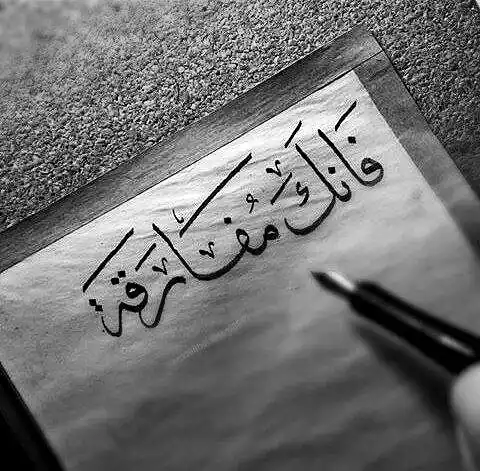 فانك مفارقة